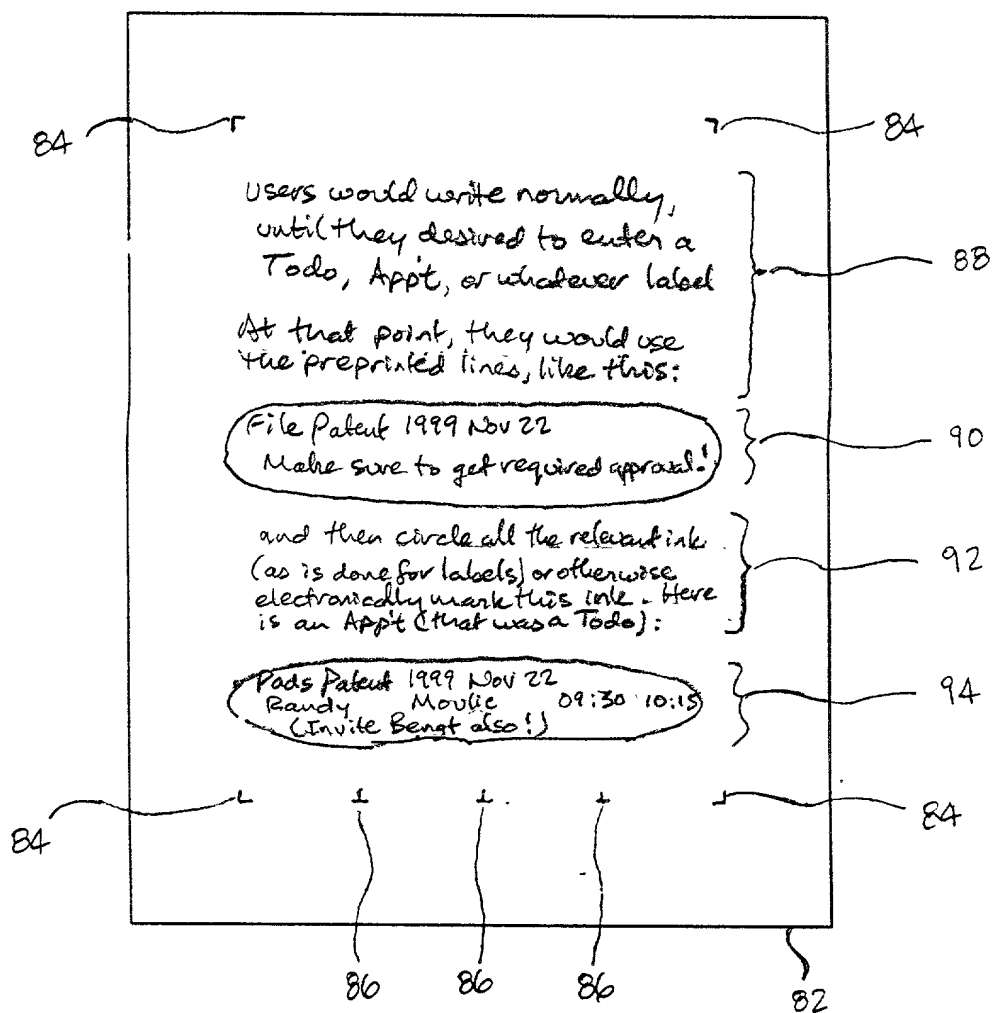 84 84
Users would write normally,
until they desired to enter a
Todo, App't, or whatever label
88
At that point, they would use
the preprinted lines, like this:
File Patent 1999 Nov 22
Make sure to get required approval!
90
and then circle all the relevant ink
(as is done for labels) or otherwise
electronically mark this ink. Here
is an App't (that was a Todo):
92
Pads Patent 1999 Nov 22
Randy 09:30 10:15
(Invite Bengt also!)
94
84 84
86 86 86
82